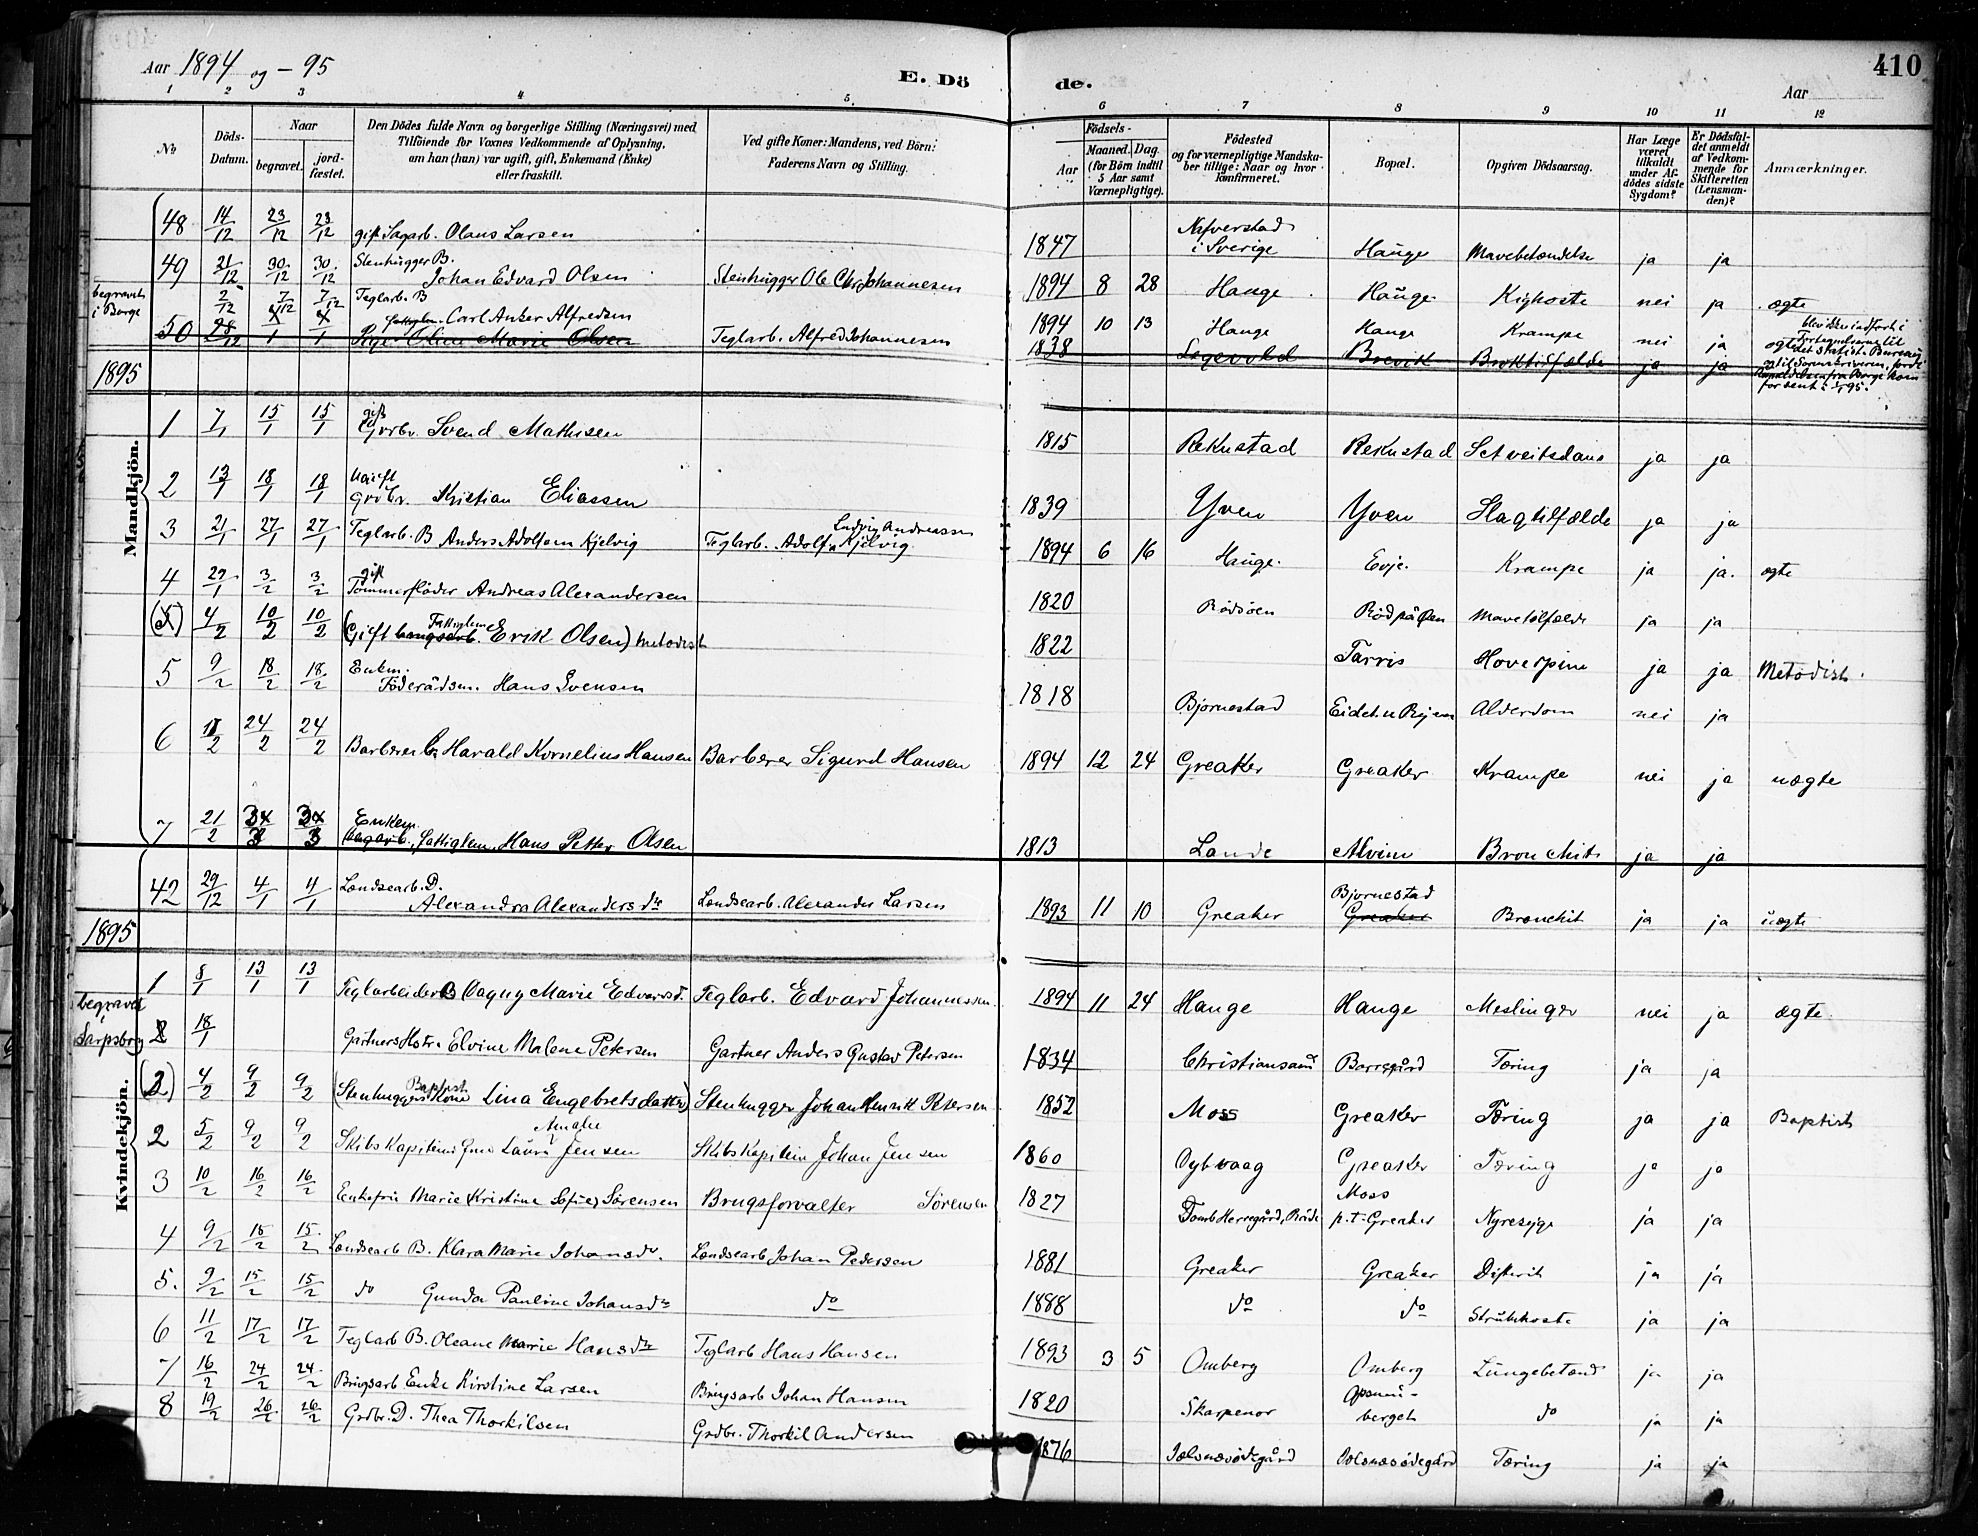 Aar 1894 og - 95
E. Dö de.
410
Aar
1 2 3 4 5 6 7 8 9 10 11 12
No
Döds-Datum.
Naar
begravet.
jord-fæstet.
Den Dödes fulde Navn og borgerlige Stilling (Næringsvei) med
Tilföiende for Voxnes Vedkommende af Oplysning,
om han (hun) var ugift, gift, Enkemand (Enke)
eller fraskilt.
Ved gifte Koner: Mandens, ved Börn:
Faderens Navn og Stilling.
Födsels-
Aar
Maaned. Dag.
(for Börn indtil
5 Aar samt
Værnepligtige).
Födested
og for værnepligtige Mandska-
ber tillige: Naar og hvor
konfirmeret.
Bopæl.
Opgiven Dödsaarsag.
Har Læge
været
tilkaldt
under Af-
dödes sidste
Sygdom?
Er Dödsfal-
det anmeldt
af Vedkom-
mende for
Skifteretten
(Lensman-
den)?
Anmærkninger.
48 14/12 23/12 23/12 gift Sagarb. Olaus Larsen 1847 Nafverstad i Sverige Hauge Mavebetændelse ja ja
49 21/12 30/12 30/12 Stenhugger B. Johan Edvard Olsen Stenhugger Ole Chr. Johannesen 1894 8 28 Hauge Hauge Kighoste nei ja ægte
begravet i Borge 2/12 7/12 7/12 Teglarb. B Carl Anker Alfredsen Teglarb. Alfred Johannesen 1894 10 13 Hauge Hauge Krampe nei ja ægte
50 28/12 Pige Oline Marie Olsen 1838 Brevik ja ja
1895
Mandkjön.
1 7/1 15/1 15/1 gift Grbr. Svend Mathisen 1815 Rekustad Rekustad Sct veitsdans ja ja
2 13/1 18/1 18/1 Ugift Grdbr. Kristian Eliassen 1839 Yven Yven Slagtilfælde ja ja
3 21/1 27/1 27/1 Teglarb. B Anders Adolfsen Kjelvig Teglarb. Adolf Ludvig Andreassen Kjelvig. 1894 6 16 Hauge. Evje. Krampe ja ja. ægte
4 29/1 3/2 3/2 gift Tømmerfløder Andreas Alexandersen 1820 Rødsøen Mavetilfælde ja ja
(5) 4/2 10/2 10/2 (Gift Fattiglem Erik Olsen) Metodist 1822 Tarris ja ja Metodist.
5 9/2 18/2 18/2 Enkm. Föderådsm. Hans Svensen 1818 Bjornestad Alderdom nei ja
6 18/2 24/2 24/2 Barberer B Harald Kornelius Hansen Barberer Sigurd Hansen 1894 12 24 Greaker Greaker Krampe nei ja uægte
7 21/2 Enkem. Fattiglem. Hans Petter Olsen 1813 Lande Alvim Bronchit ja ja
42 29/12 4/1 4/1 Lændsearb. D. Alexandra Alexandersdtr Lændsearb. Alexander Larsen 1893 11 10 Greaker Bjornestad Greaker Bronchit ja ja uægte
1895
Kvindekjön.
1 8/1 13/1 13/1 Teglarbeider B Dagny Marie Edvarsd. Teglarb. Edvard Johannessen. 1894 11 24 Hauge Hauge Meslinger nei ja ægte.
begravet i Sarpsborg 2 18/1 Gartners Hstr. Elvine Malene Petersen Gartner Anders Gustav Petersen 1834 Christiansand Borregård Tæring ja ja
(2) 4/2 9/2 9/2 (Stenhuggers Kone Baptist Lina Engebretsdatter) Stenhugger Johan Henrik Petersen 1852 Moss Greaker Tæring ja ja Baptist
2 5/2 9/2 9/2 Skibskapteins Laura Amalie Jensen Skibskaptein Johan Jensen 1860 Dybvaag Greaker Tæring ja ja
3 10/2 16/2 16/2 Enkefru Marie (Kristine Sofie) Sørensen Brugsforvalter Sørensen 1827 Tomb Herregård, Råde Moss p.t. Greaker Nyresyge ja ja
4 9/2 15/2 15/2 Lændsearb B. Klara Marie Johansdr. Lændsearb Johan Pedersen 1881 Greaker Greaker Difterit ja ja
5. 9/2 15/2 15/2 do Gunda Pauline Johansdr do 1888 do do Strubehoste ja ja
6 11/2 17/2 17/2 Teglarb B. Oleane Marie Hansdtr Teglarb Hans Hansen 1893 3 5 Omberg Omberg Lungebetænd ja ja
7 16/2 24/2 24/2 Brugsarb Enke Kirstine Larsen Brugsarb Johan Hansen 1820 Skarpenor Opsund-berget do ja ja
8 19/2 26/2 26/2 Grdbr. D. Thea Thorkilsen Grdbr. Thorkil Andersen 1876 Tæring ja ja